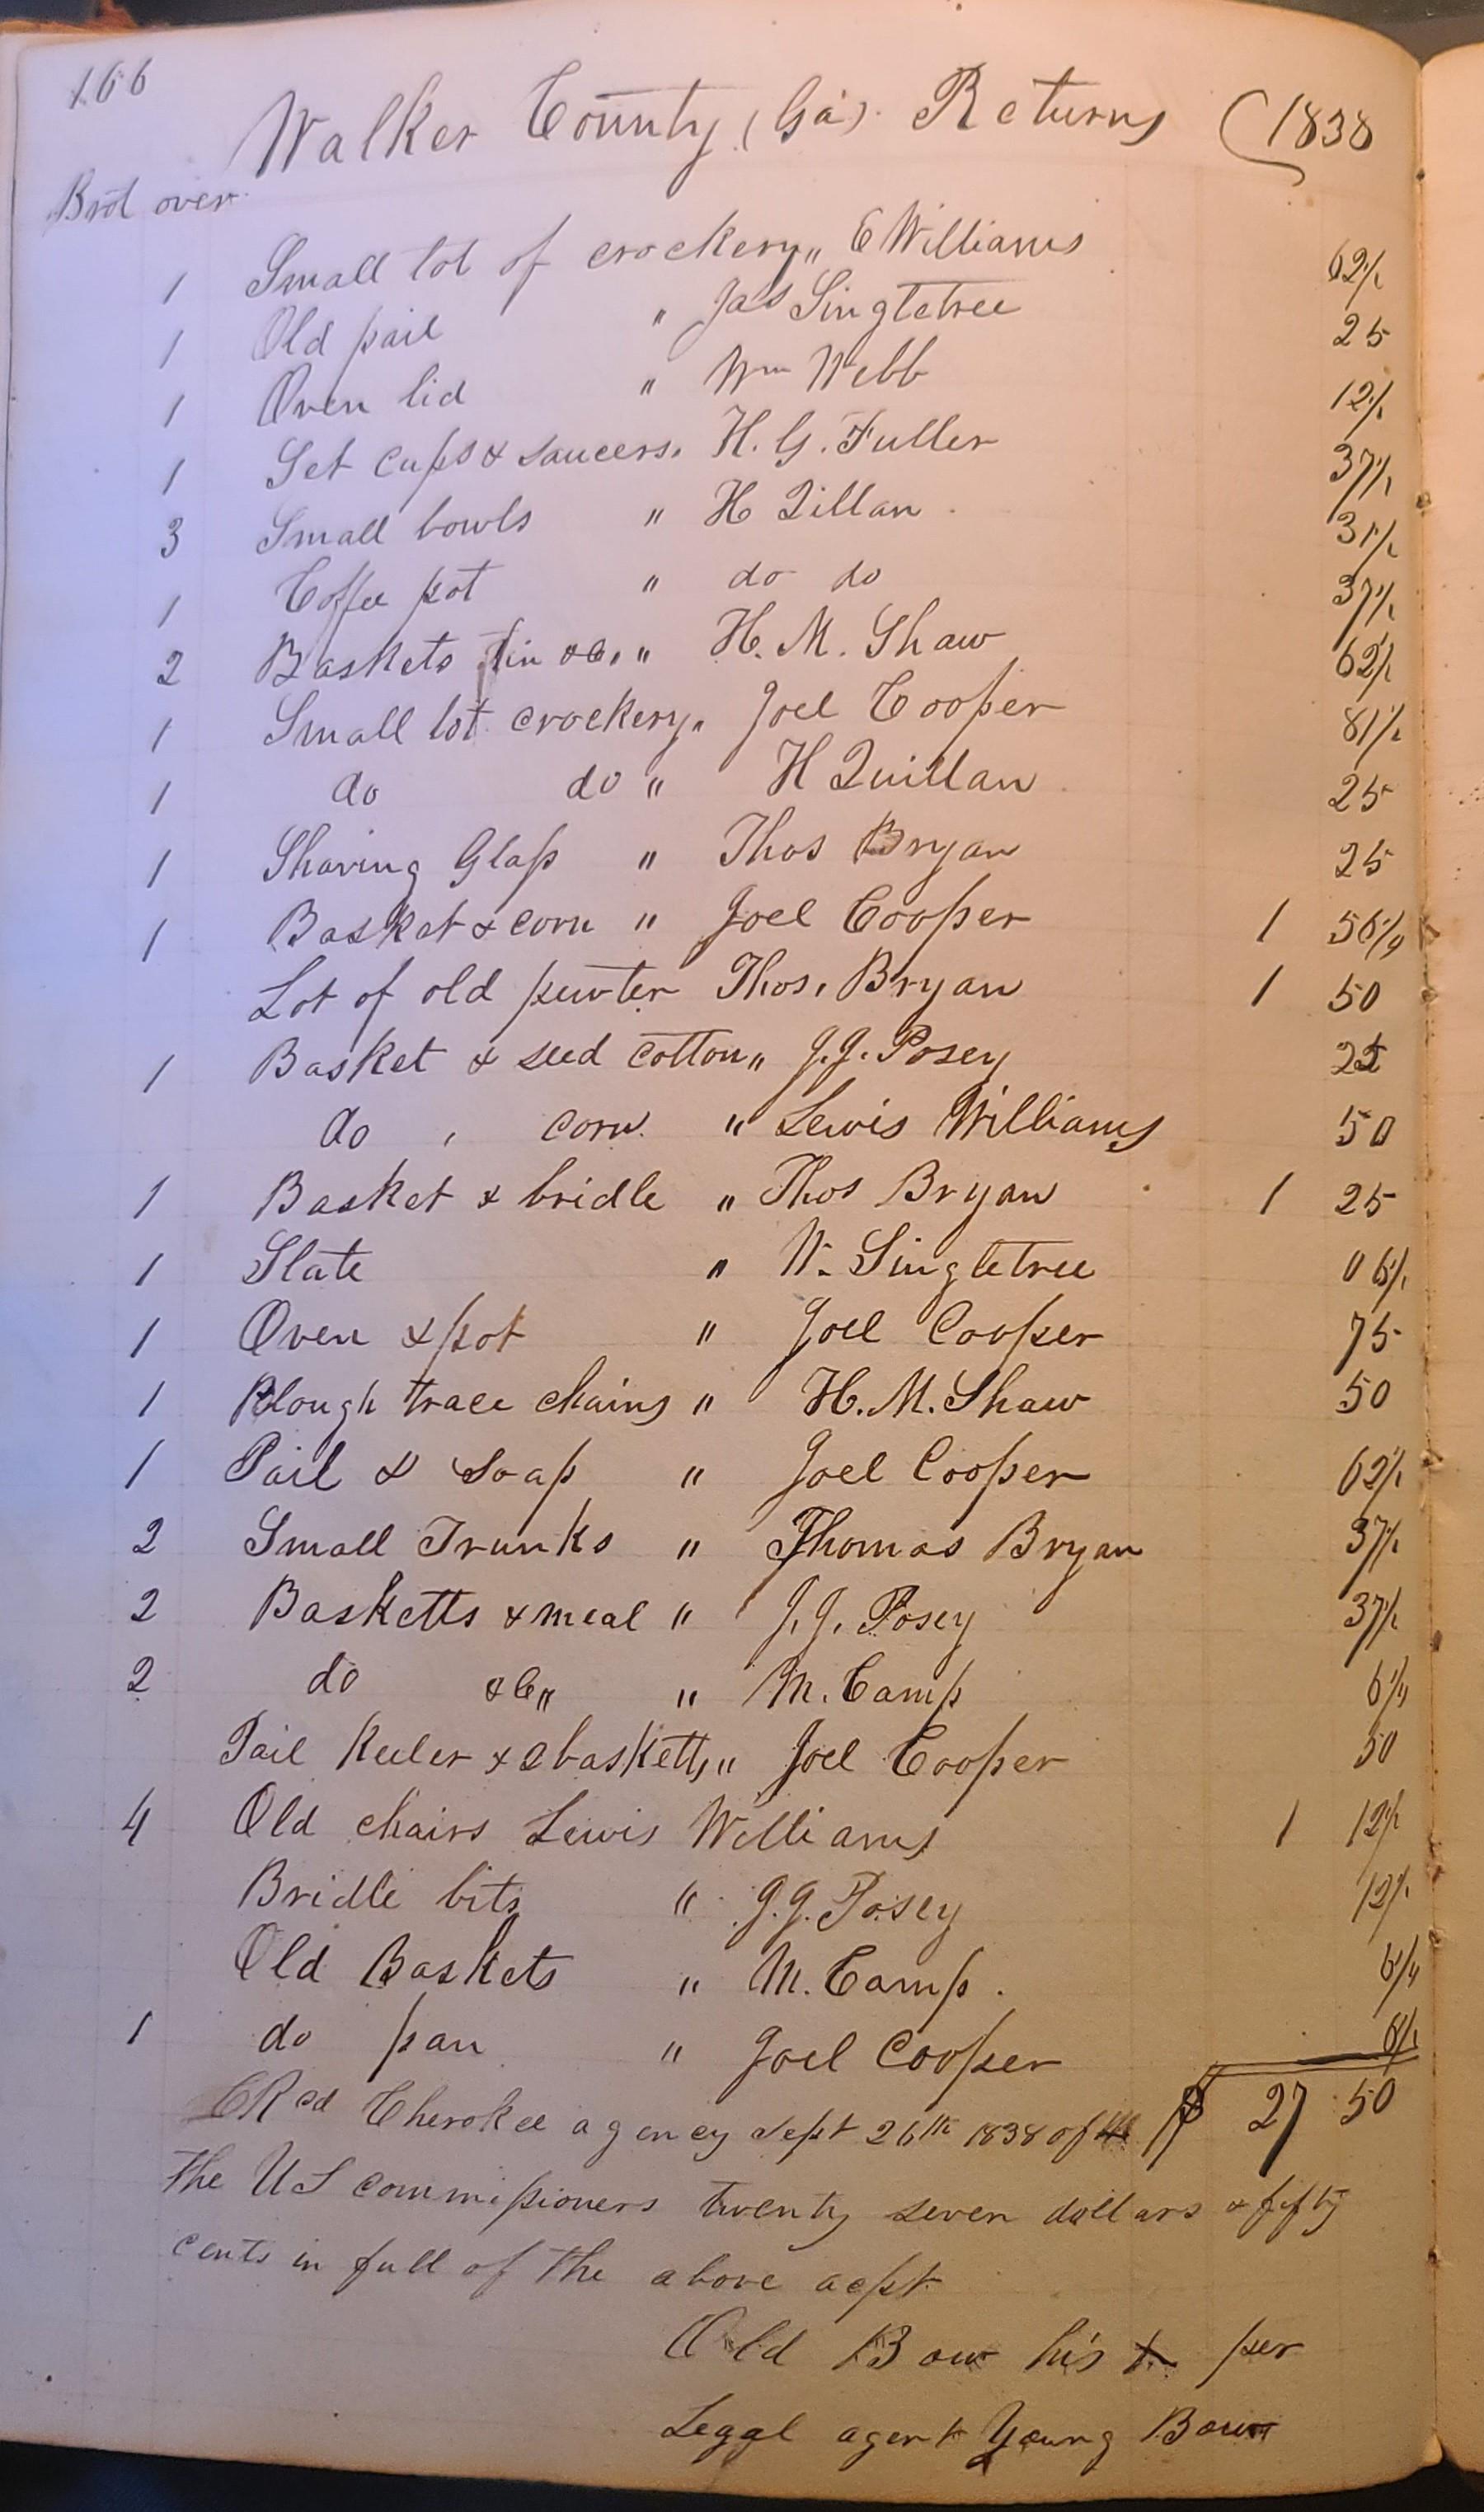 166
Walker County, (Ga). Returns (1838
Brot over
1 Small lot of crockery " E Williams 62 1/2
1 Old pail " Jas Singletree 25
1 Oven lid " Wm Webb 12 1/2
1 Set cups & saucers " H. G. Fuller 37 1/2
3 Small bowls " H Quillan 31 1/4
1 Coffee pot " do do 37 1/2
2 Baskets tin &c, " H. M. Shaw 62 1/2
1 Small lot crockery " Joel Cooper 81 1/4
1 do do " H Quillan 25
1 Shaving Glass " Thos Bryan 25
1 Basket & corn " Joel Cooper 1 56 1/4
Lot of old pewter Thos. Bryan 1 50
1 Basket & seed cotton " J. J. Posey 25
do , corn " Lewis Williams 50
1 Basket & bridle " Thos Bryan 1 25
1 Slate " W. Singletree 06 1/4
1 Oven & pot " Joel Cooper 75
1 Plough trace chains " H. M. Shaw 50
1 Pail & soap " Joel Cooper 62 1/2
2 Small Trunks " Thomas Bryan 37 1/2
2 Basketts & meal " J. J. Posey 37 1/2
2 do &c " " M. Camp 6 1/4
Pail keeler & 2 basketts " Joel Cooper 50
4 Old chairs Lewis Williams 1 12 1/2
Bridle bits " J. J. Posey 12 1/2
Old Baskets " M. Camp. 6 1/4
1 do pan " Joel Cooper 6 1/4
Recd Cherokee agency Sept 26th 1838 of $ 27 50
the US commissioners twenty seven dollars & fifty
cents in full of the above acpt
Old Bow his x per
Legal agent Young Bow